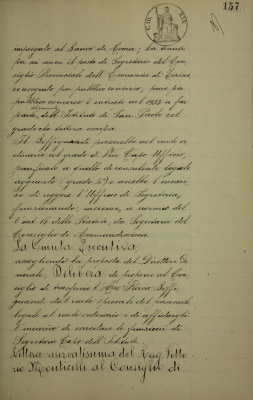 157
impiegato al Banco di Roma; ha tenuto
per sei anni il posto di Segretario del Con-
siglio Provinciale dell'Economia di Torino
conseguito per pubblico concorso, pure per
pubblico concorso è entrato nel 1933 a far
parte dell'Istituto di San Paolo col
grado che tuttora occupa.
Il
ordinario col grado di Vice Capo Ufficio,
a quello di consulente legale
aggiunto (grado
di reggere l'Ufficio di Segreteria,
funzionando, a norma del-
l'art. 16 dello Statuto, da Segretario del
Consiglio di Amministrazione.
La Giunta Esecutiva,
accogliendo la proposta del Direttore Ge-
nerale, Delibera di proporre al Con-
siglio di trasferire l'Avv.
dal ruolo speciale del personale
legale al ruolo ordinario e di affidargli
l'incarico di esercitare le funzioni di
Segretario Capo dell'Istituto.
Lettera riservatissima del Rag. Vitto-
rio Monticelli al Consiglio di